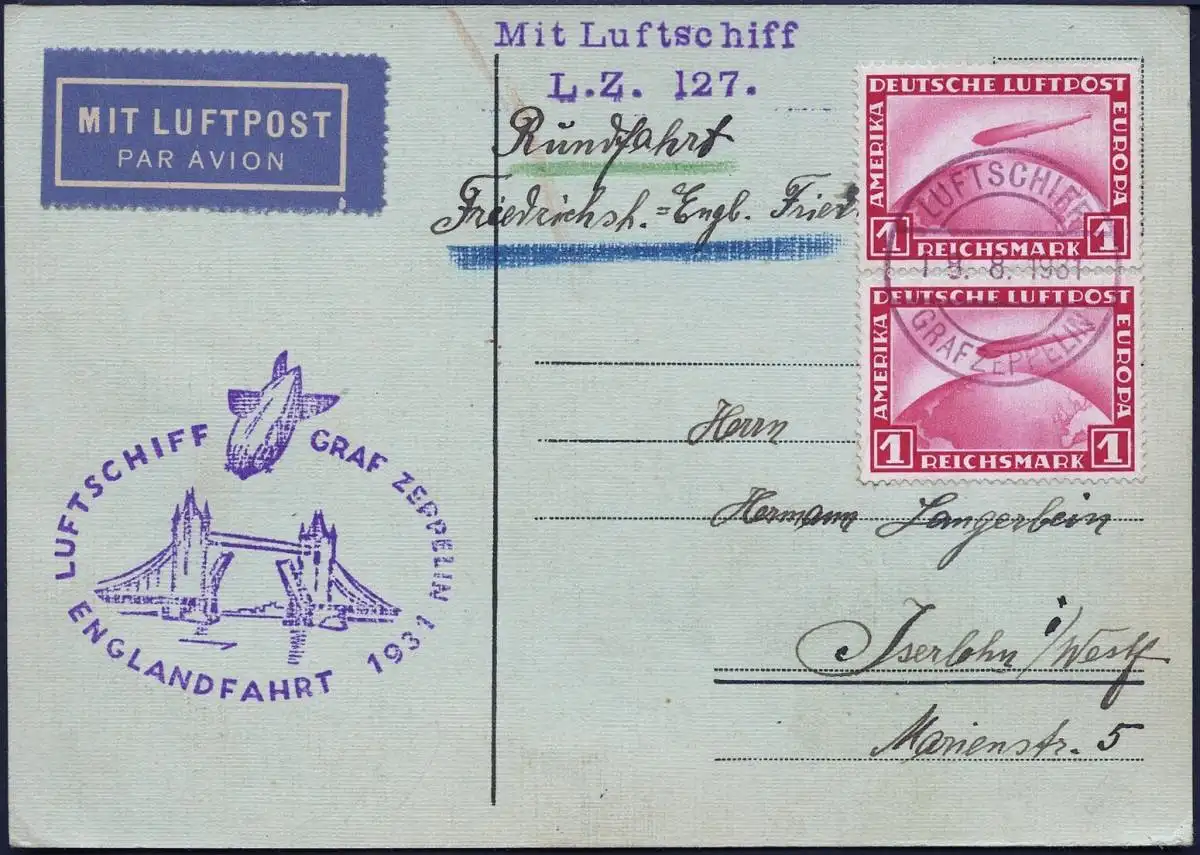 MIT LUFTPOST
PAR AVION
Mit Luftschiff
L.Z. 127.
Rundfahrt
Friedrichsh.=Engl. Fried
DEUTSCHE LUFTPOST
AMERIKA
EUROPA
1 REICHSMARK 1
LUFTSCHIFF
9. 8. 1931
GRAF ZEPPELIN
DEUTSCHE LUFTPOST
AMERIKA
EUROPA
1 REICHSMARK 1
LUFTSCHIFF GRAF ZEPPELIN
ENGLANDFAHRT 1931
Herrn
Hermann Langerbein
Iserlohn i/Westf
Marienstr. 5